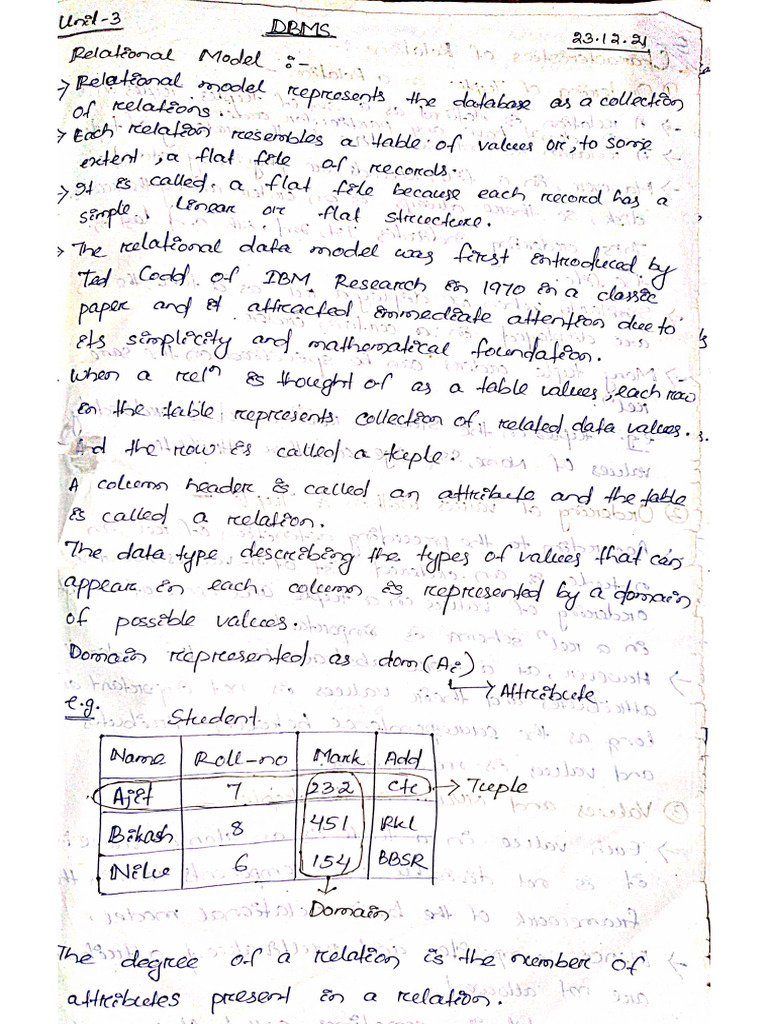 Unit-3
DBMS
23.12.21
Relational Model :-
→ Relational model represents the database as a collection
of relations.
→ Each relation resembles a table of values or, to some
extent, a flat file of records.
→ It is called a flat file because each record has a
simple, linear or flat structure.
→ The relational data model was first introduced by
Ted Codd of IBM Research in 1970 in a classic
paper and it attracted immediate attention due to
its simplicity and mathematical foundation.
When a relⁿ is thought of as a table values, each row
in the table represents collection of related data values.
And the row is called a tuple.
A column header is called an attribute and the table
is called a relation.
The data type describing the types of values that can
appear in each column is represented by a domain
of possible values.
Domain represented as dom(Ai)
→ Attribute
e.g.
Student
Name Roll-no Mark Add
Ajit 7 232 Ctc → Tuple
Bikash 8 451 RKL
Nilu 6 154 BBSR
Domain
The degree of a relation is the number of
attributes present in a relation.